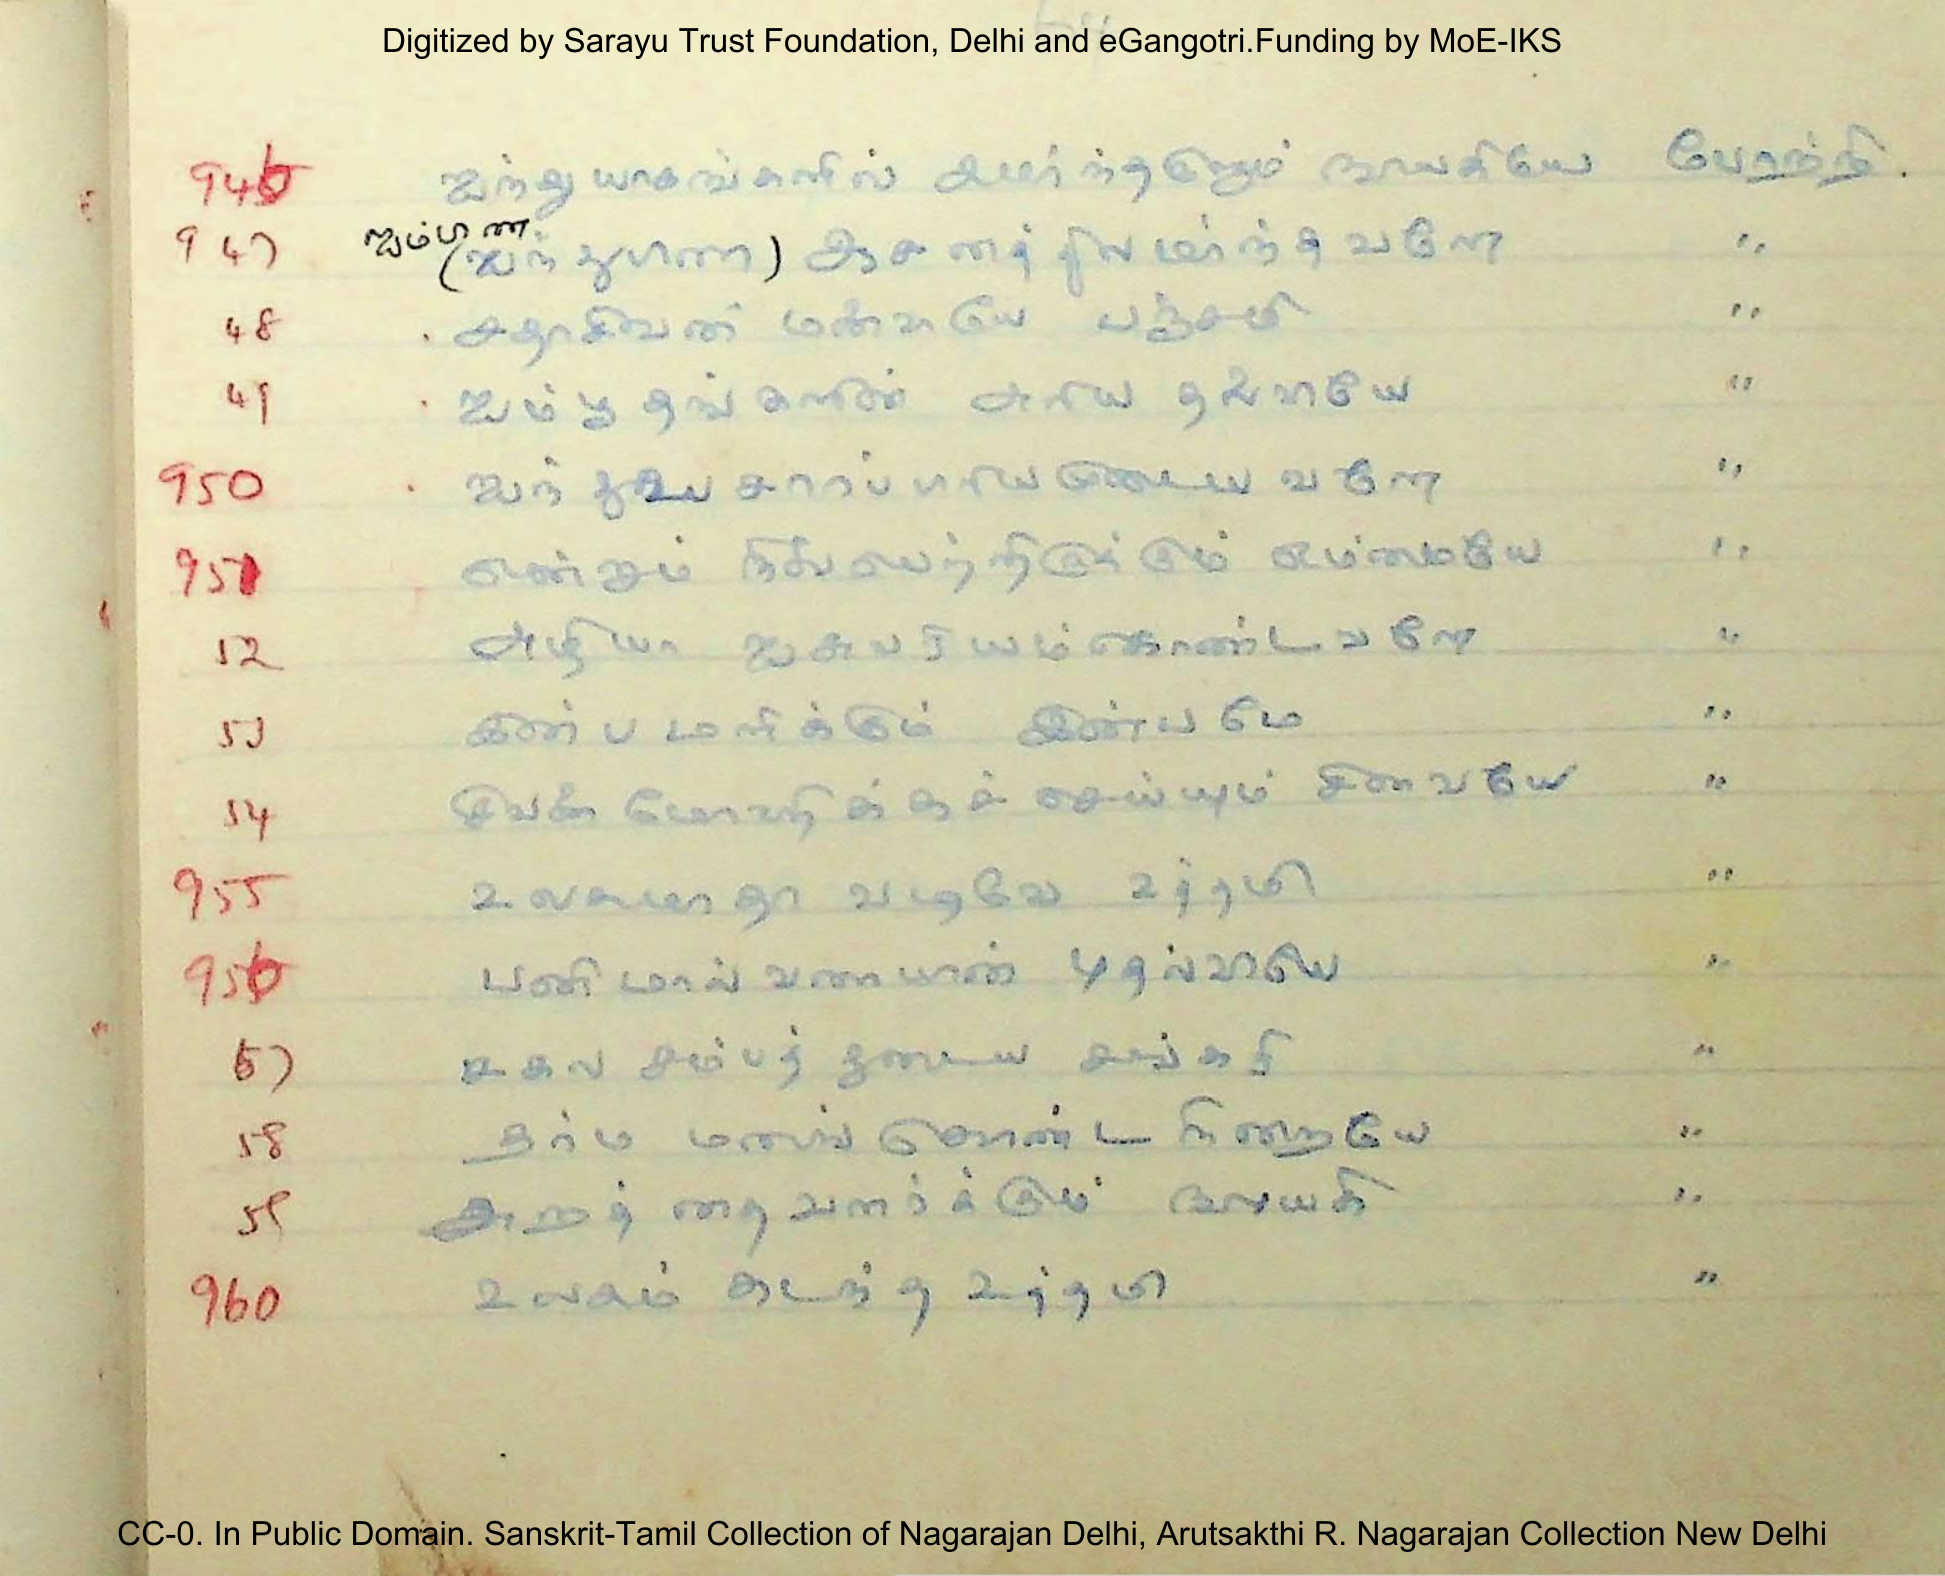 Digitized by Sarayu Trust Foundation, Delhi and eGangotri.Funding by MoE-IKS
946 ஐந்து யாகங்களில் நாயகியே போற்றி.
ஐம்பாண
947 (ஐந்துபாண) ஆசனத்திலமர்ந்தவளே "
48 . சதாசிவன் மனைவியே பஞ்சமி "
49 . ஐம்பூதங்களின் அரிய தலைவியே "
950 . ஐந்துஉபசாரப் பிரியமுடையவளே "
951 என்றும் நிலைபெற்றிருக்கும் எம்மையே "
52 அழியா ஐசுவரியம்கொண்டவளே "
53 இன்பமளிக்கும் இன்பமே "
54 சிவனை மோஹிக்கச் செய்யும் சிவையே "
955 உலகமாதா வடிவே உத்தமி "
956 பனிமால் வரையான் புதல்வியே "
57 சகல சம்பத்துடைய சங்கரி "
58 தர்ம மனங் கொண்ட நிறையே "
59 அறத்தை வளர்க்கும் நாயகி "
960 உலகம் கடந்த உத்தமி "
CC-0. In Public Domain. Sanskrit-Tamil Collection of Nagarajan Delhi, Arutsakthi R. Nagarajan Collection New Delhi